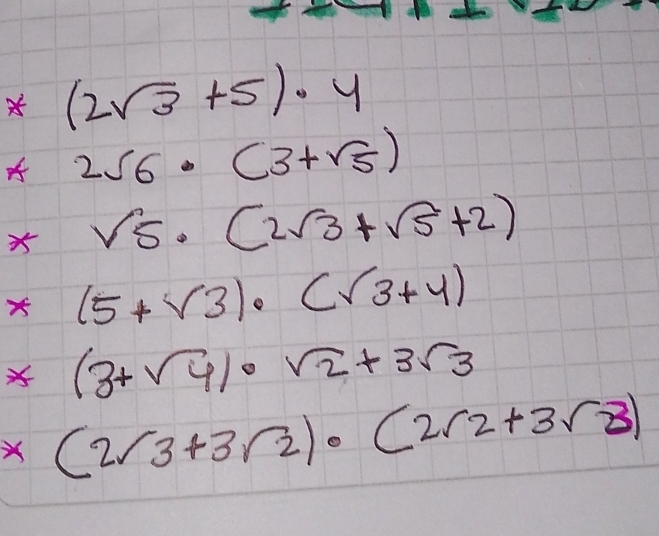 * (2√3 + 5) · 4
* 2√6 · (3+√5)
* √5 · (2√3 + √5 + 2)
* (5 + √3) · (√3 + 4)
* (3 + √4) · √2 + 3√3
* (2√3 + 3√2) · (2√2 + 3√3)